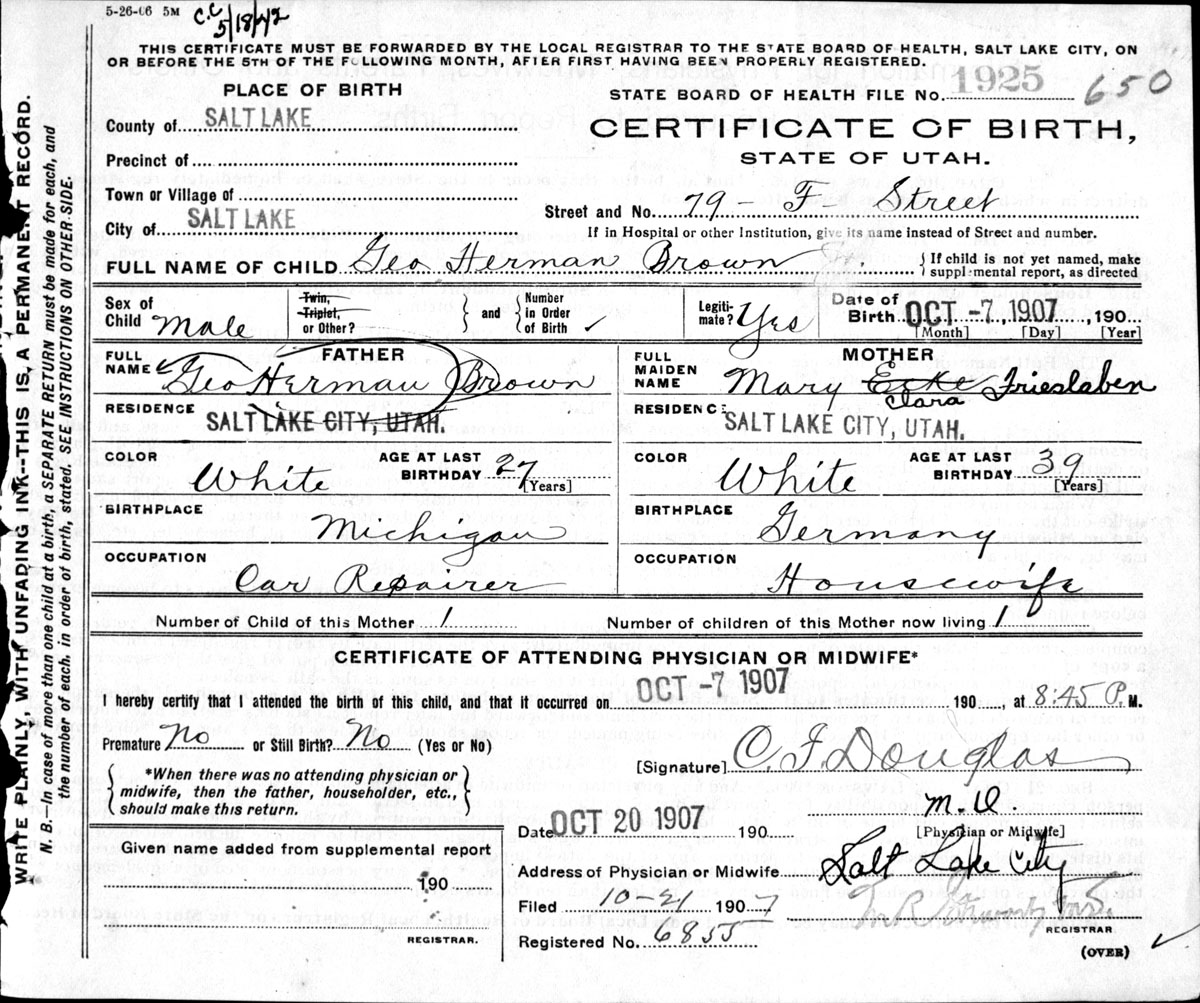 5-26-06 5M
C.C 5/18/42
THIS CERTIFICATE MUST BE FORWARDED BY THE LOCAL REGISTRAR TO THE STATE BOARD OF HEALTH, SALT LAKE CITY, ON
OR BEFORE THE 5TH OF THE FOLLOWING MONTH, AFTER FIRST HAVING BEEN PROPERLY REGISTERED.
PLACE OF BIRTH
STATE BOARD OF HEALTH FILE No. 1925 650
County of SALT LAKE
CERTIFICATE OF BIRTH,
Precinct of
STATE OF UTAH.
Town or Village of
City of SALT LAKE
Street and No. 79 - F - Street
If in Hospital or other Institution, give its name instead of Street and number.
FULL NAME OF CHILD Geo Herman Brown
If child is not yet named, make
supplemental report, as directed
Sex of Child Male
Twin, Triplet, or Other?
and
Number in Order of Birth
Legiti-mate? Yes
Date of Birth OCT -7, 1907, 190
[Month] [Day] [Year]
FATHER
FULL NAME Geo Herman Brown
RESIDENCE SALT LAKE CITY, UTAH.
COLOR White
AGE AT LAST BIRTHDAY 27 [Years]
BIRTHPLACE Michigan
OCCUPATION Car Repairer
MOTHER
FULL MAIDEN NAME Mary Ecke Clara Frieslaben
RESIDENCE SALT LAKE CITY, UTAH.
COLOR White
AGE AT LAST BIRTHDAY 39 [Years]
BIRTHPLACE Germany
OCCUPATION Housewife
Number of Child of this Mother 1
Number of children of this Mother now living 1
CERTIFICATE OF ATTENDING PHYSICIAN OR MIDWIFE*
I hereby certify that I attended the birth of this child, and that it occurred on OCT -7 1907 190, at 8:45 P. M.
Premature No or Still Birth? No (Yes or No)
[Signature] C. F. Douglas
*When there was no attending physician or
midwife, then the father, householder, etc.,
should make this return.
M.D
[Physician or Midwife]
Date OCT 20 1907 190
Given name added from supplemental report
190
REGISTRAR.
Address of Physician or Midwife Salt Lake City
Filed 10-21 1907
REGISTRAR
Registered No. 6855
(OVER)
WRITE PLAINLY, WITH UNFADING INK--THIS IS A PERMANENT RECORD.
N. B.--In case of more than one child at a birth, a SEPARATE RETURN must be made for each, and
the number of each, in order of birth, stated. SEE INSTRUCTIONS ON OTHER SIDE.